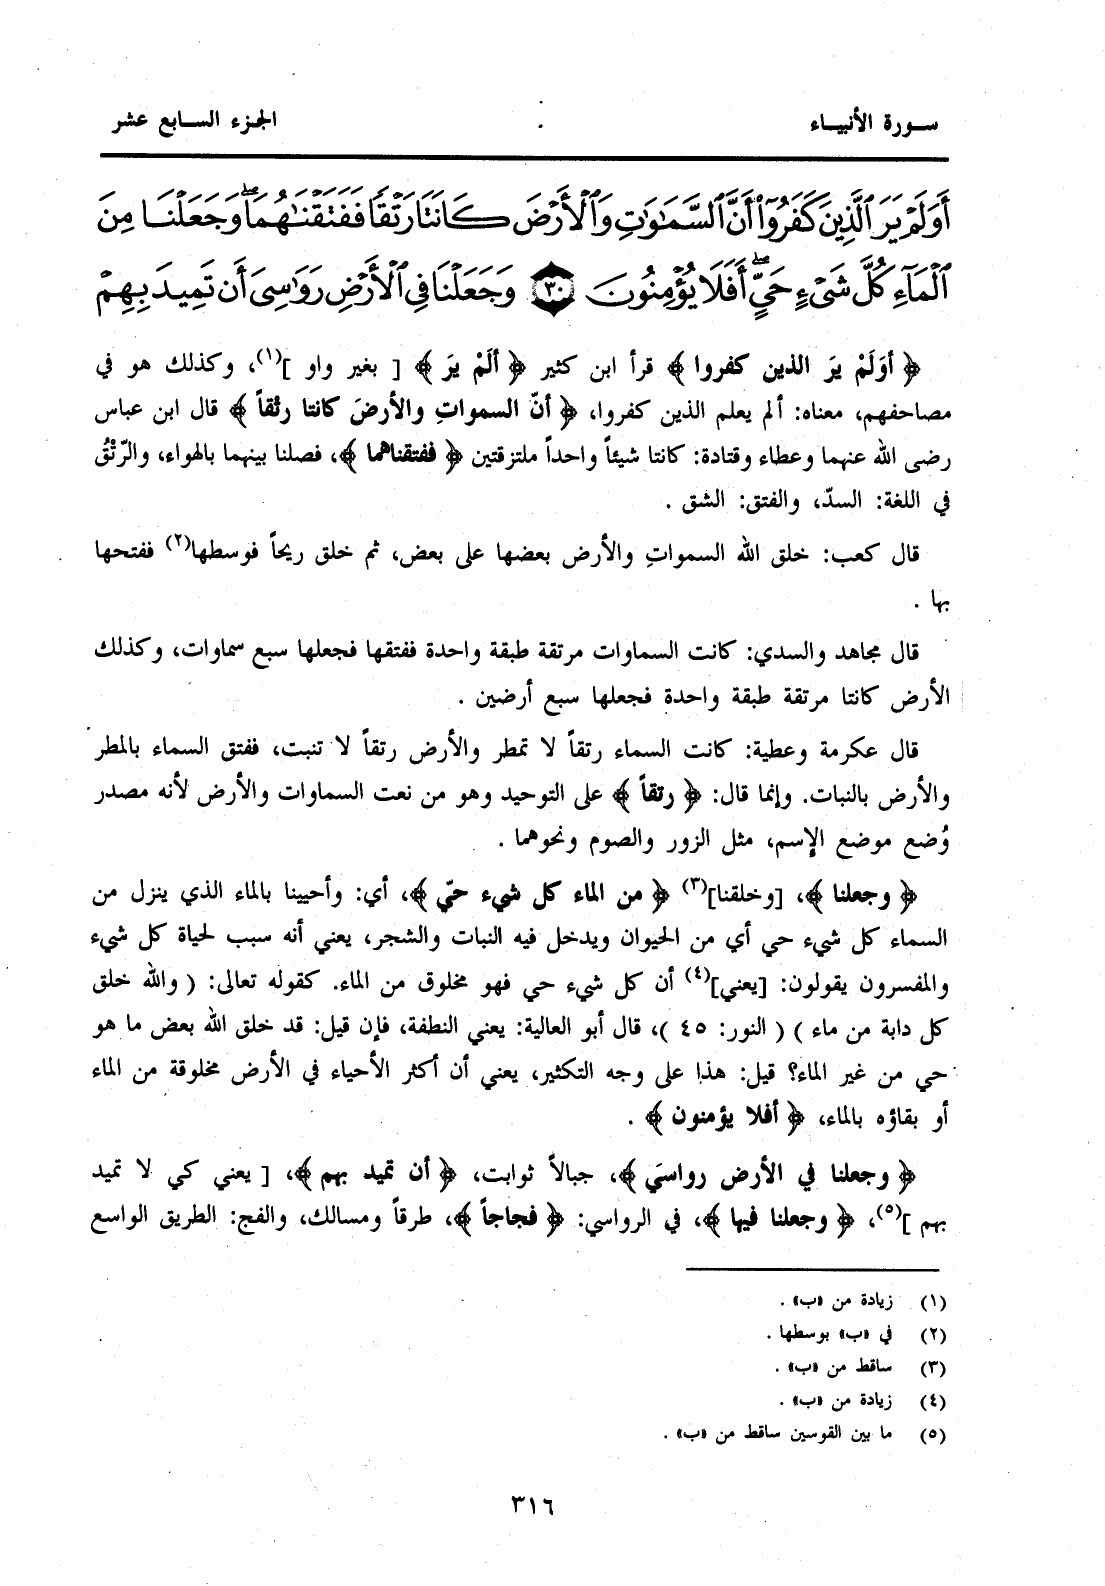 سورة الأنبياء
الجزء السابع عشر
أَوَلَمْ يَرَ ٱلَّذِينَ كَفَرُوٓا۟ أَنَّ ٱلسَّمَٰوَٰتِ وَٱلْأَرْضَ كَانَتَا رَتْقًا فَفَتَقْنَٰهُمَا ۖ وَجَعَلْنَا مِنَ
ٱلْمَآءِ كُلَّ شَىْءٍ حَىٍّ ۖ أَفَلَا يُؤْمِنُونَ ﴿٣٠﴾ وَجَعَلْنَا فِى ٱلْأَرْضِ رَوَٰسِىَ أَن تَمِيدَ بِهِمْ
﴿ أوَلَمْ يرَ الذين كفروا ﴾ قرأ ابن كثير ﴿ ألَمْ يرَ ﴾ [ بغير واو ](١)، وكذلك هو في
مصاحفهم، معناه: ألم يعلم الذين كفروا، ﴿ أنّ السمواتِ والأرضَ كانتا رتْقاً ﴾ قال ابن عباس
رضى الله عنهما وعطاء وقتادة: كانتا شيئاً واحداً ملتزقتين ﴿ ففتقناهما ﴾، فصلنا بينهما بالهواء، والرّتْقُ
في اللغة: السدّ، والفتق: الشق .
قال كعب: خلق الله السمواتِ والأرض بعضها على بعض، ثم خلق ريحاً فوسطها(٢) ففتحها
بها .
قال مجاهد والسدي: كانت السماوات مرتقة طبقة واحدة ففتقها فجعلها سبع سماوات، وكذلك
الأرض كانتا مرتقة طبقة واحدة فجعلها سبع أرضين .
قال عكرمة وعطية: كانت السماء رتقاً لا تمطر والأرض رتقاً لا تنبت، ففتق السماء بالمطر
والأرض بالنبات. وإنما قال: ﴿ رتقاً ﴾ على التوحيد وهو من نعت السماوات والأرض لأنه مصدر
وُضع موضع الإسم، مثل الزور والصوم ونحوهما .
﴿ وجعلنا ﴾، [وخلقنا](٣) ﴿ من الماء كل شيء حيّ ﴾، أي: وأحيينا بالماء الذي ينزل من
السماء كل شيء حي أي من الحيوان ويدخل فيه النبات والشجر، يعني أنه سبب لحياة كل شيء
والمفسرون يقولون: [يعني](٤) أن كل شيء حي فهو مخلوق من الماء. كقوله تعالى: ( والله خلق
كل دابة من ماء ) ( النور: ٤٥ )، قال أبو العالية: يعني النطفة، فإن قيل: قد خلق الله بعض ما هو
حي من غير الماء؟ قيل: هذا على وجه التكثير، يعني أن أكثر الأحياء في الأرض مخلوقة من الماء
أو بقاؤه بالماء، ﴿ أفلا يؤمنون ﴾ .
﴿ وجعلنا في الأرض رواسيَ ﴾، جبالاً ثوابت، ﴿ أن تميد بهم ﴾، [ يعني كي لا تميد
بهم ](٥)، ﴿ وجعلنا فيها ﴾، في الرواسي: ﴿ فجاجاً ﴾، طرقاً ومسالك، والفج: الطريق الواسع
(١) زيادة من «ب» .
(٢) في «ب» بوسطها .
(٣) ساقط من «ب» .
(٤) زيادة من «ب» .
(٥) ما بين القوسين ساقط من «ب» .
٣١٦